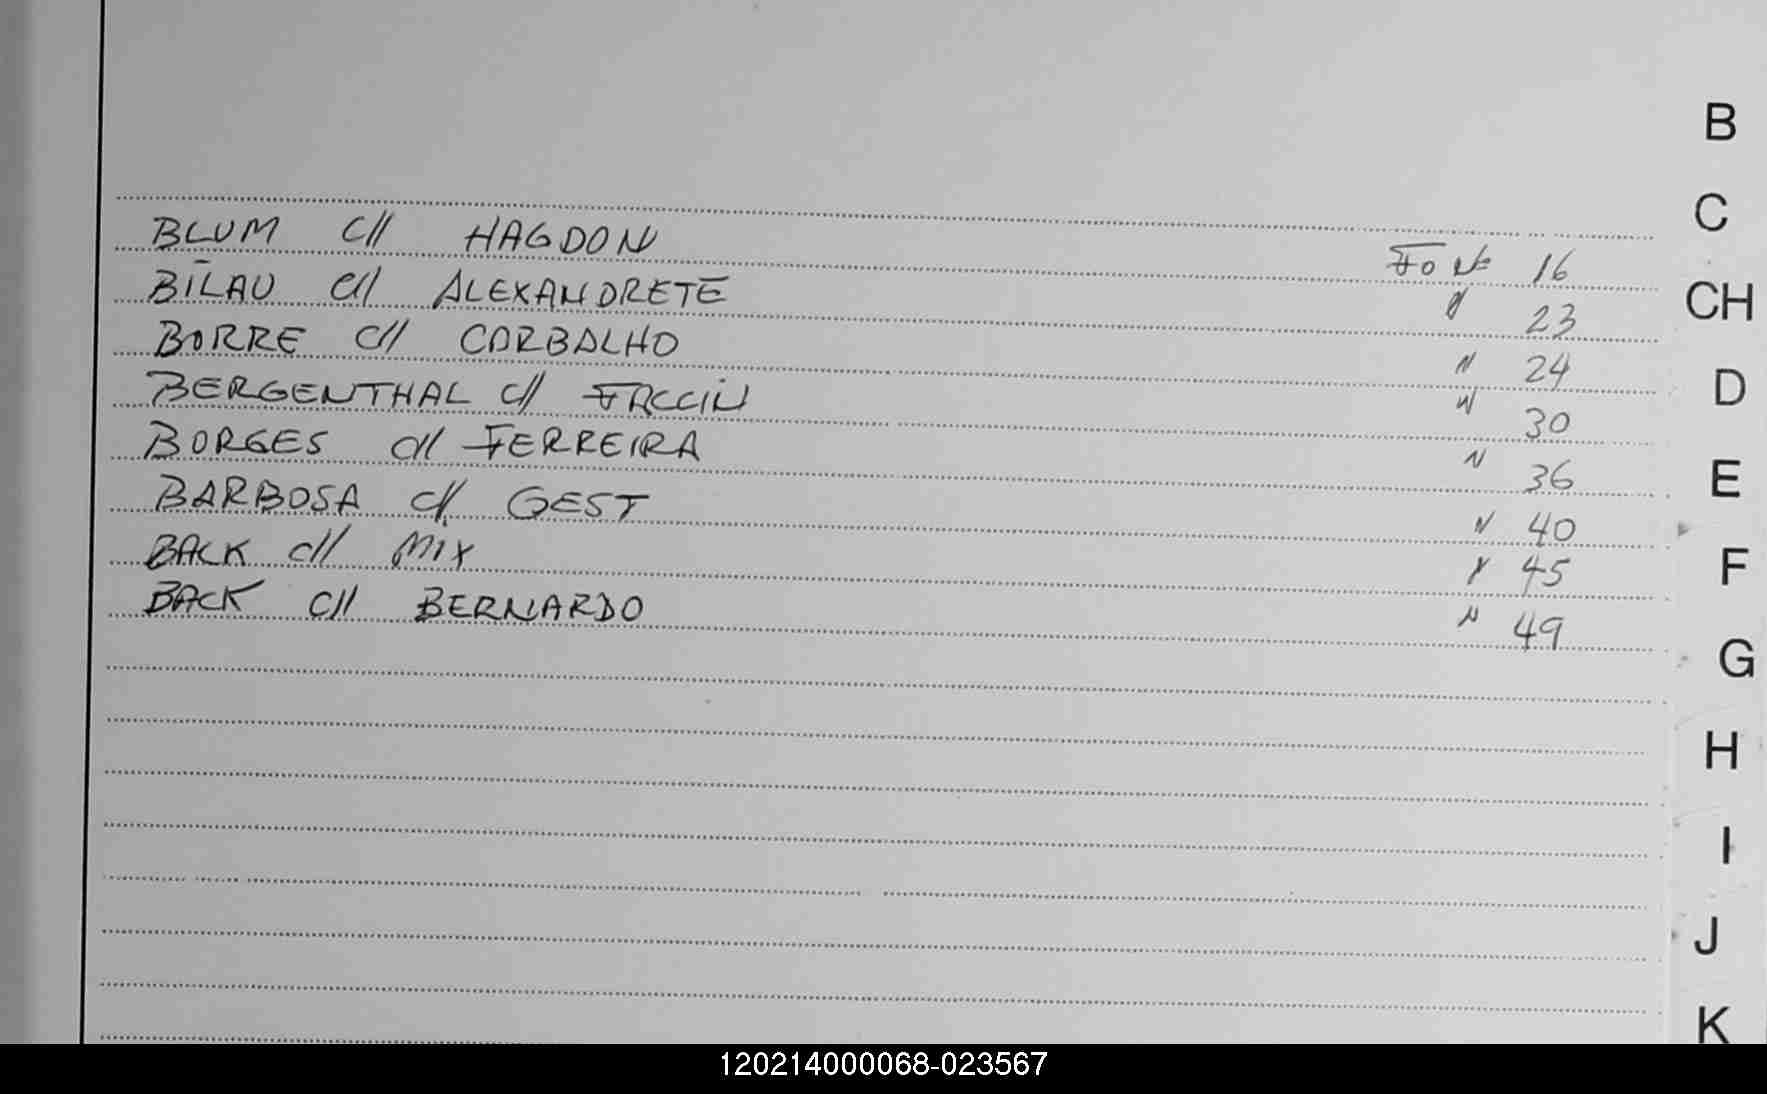 B
C
BLUM c// HAGDON Fo Nº 16
CH
BILAU c// ALEXANDRETE " 23
BORRE c// CARBALHO " 24
D
BERGENTHAL c// FACCIN " 30
BORGES c// FERREIRA " 36
E
BARBOSA c// GEST " 40
BACK c// MIX " 45
F
BACK c// BERNARDO " 49
G
H
I
J
K
120214000068-023567